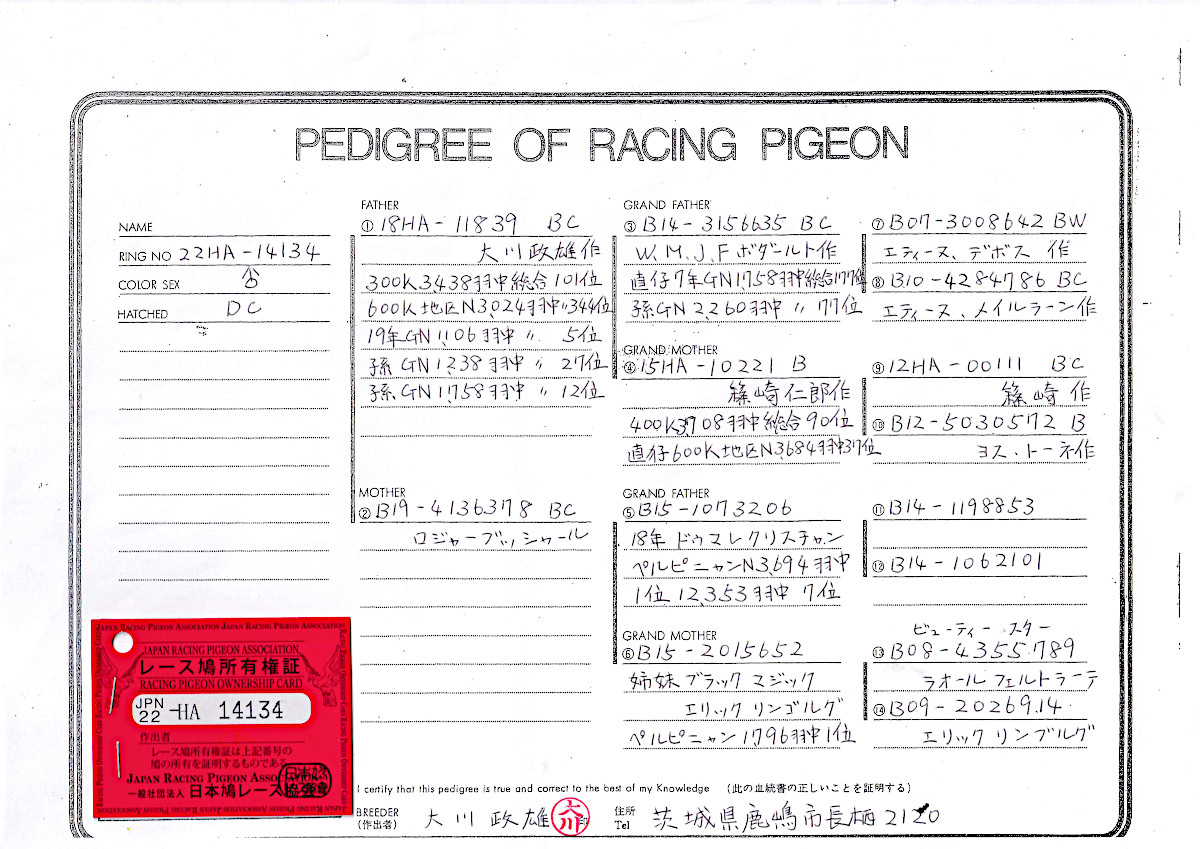 PEDIGREE OF RACING PIGEON
NAME
RING NO 22HA-14134
COLOR SEX
HATCHED DC
FATHER
① 18HA-11839 BC
大川政雄作
300K3,438羽中総合101位
600K地区N3,024羽中〃344位
19年GN1,106羽中 〃 5位
孫GN1,238羽中 〃 27位
孫GN1,758羽中 〃 12位
MOTHER
② B19-4136378 BC
ロジャーブッシャール
GRAND FATHER
③ B14-3156635 BC
W.M.J.Fボダールト作
直仔7年GN1,758羽中総合177位
孫GN2,260羽中 〃 77位
GRAND MOTHER
④ 15HA-10221 B
篠崎仁郎作
400K3,708羽中総合90位
直仔600K地区N3,684羽中37位
GRAND FATHER
⑤ B15-1073206
18年ドゥマレクリスチャン
ペルピニャンN3,694羽中
1位 12,353羽中 7位
GRAND MOTHER
⑥ B15-2015652
姉妹ブラックマジック
エリックリンブルグ
ペルピニャン1,796羽中1位
⑦ B07-3008642 BW
エティーヌ、デボス 作
⑧ B10-4284786 BC
エティーヌ、メイルラーン作
⑨ 12HA-00111 BC
篠崎 作
⑩ B12-5030572 B
ヨス、トーネ作
⑪ B14-1198853
⑫ B14-1062101
ビューティー スター
⑬ B08-4355789
ラオールフェルトラーテ
⑭ B09-2026914
エリックリンブルグ
JAPAN RACING PIGEON ASSOCIATION JAPAN RACING PIGEON ASSOCIATION
JAPAN RACING PIGEON ASSOCIATION
レース鳩所有権証
RACING PIGEON OWNERSHIP CARD
JPN
22 -HA 14134
作出者
レース鳩所有権証は上記番号の
鳩の所有を証明するものである
JAPAN RACING PIGEON ASSOCIATION
一般社団法人 日本鳩レース協会
I certify that this pedigree is true and correct to the best of my Knowledge (此の血統書の正しいことを証明する)
BREEDER
(作出者) 大川政雄 大川 印
住所
Tel 茨城県鹿嶋市長栖2120